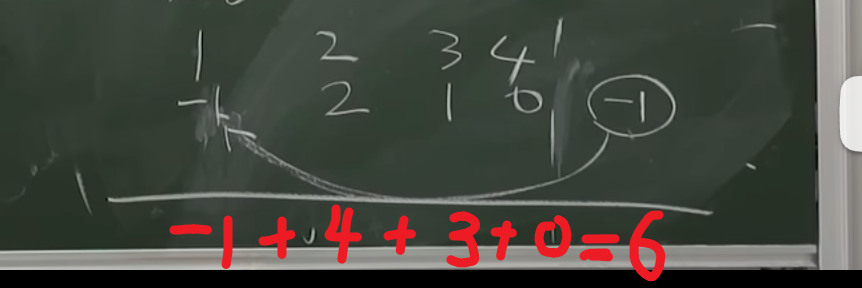 1 2 3 4
-1 2 1 0 -1
-1+4+3+0=6